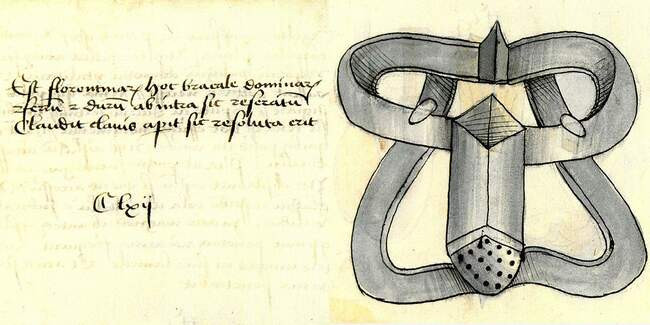 Est florentinarꝝ hoc bracale dominarꝝ
⁊ ferrū ⁊ durū ab intra sic reseratū
Claudit clavis apit sic resoluta erit
Clxij